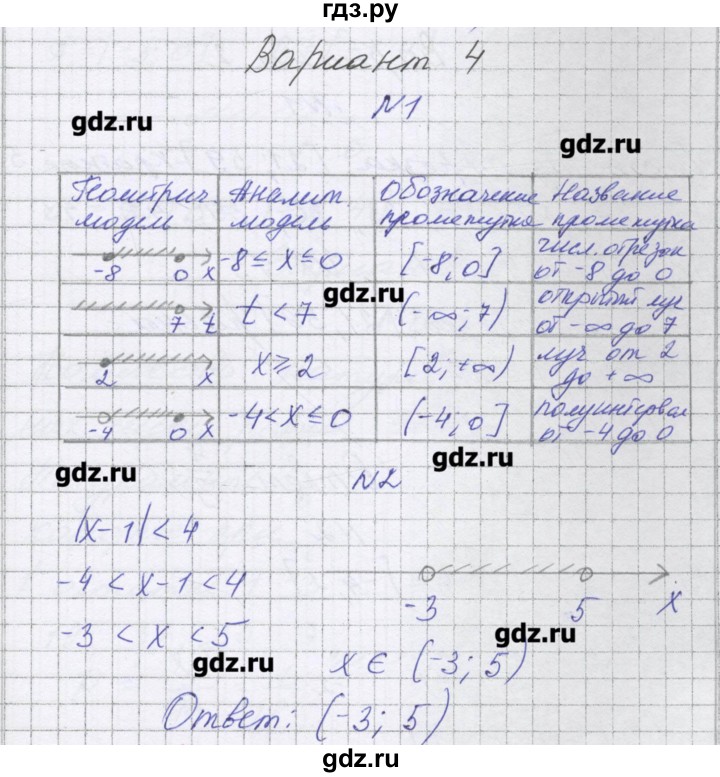 гдз.ру
Вариант 4
gdz.ru
N1
gdz.ru
Геометрич модель
Аналит модель
Обозначение промежутка
Название промежутка
-8 0 x
-8 ≤ x ≤ 0
[-8; 0]
числ. отрезок от -8 до 0
7 t
t < 7
(-∞; 7)
открытый луч от -∞ до 7
gdz.ru
2 x
x ≥ 2
[2; +∞)
луч от 2 до +∞
-4 0 x
-4 < x ≤ 0
(-4; 0]
полуинтервал от -4 до 0
gdz.ru
gdz.ru
N2
|x-1| < 4
-4 < x-1 < 4
-3 5 x
-3 < x < 5
gdz.ru
gdz.ru
x ∈ (-3; 5)
Ответ: (-3; 5)
gdz.ru